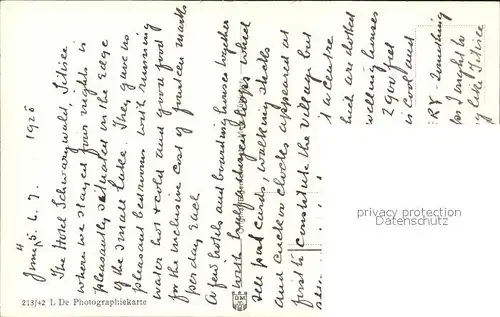 June 5. 6. 7. 1928
The Hotel Schwarzwald, Titisee
where we stayed four nights is
pleasantly situated on the edge
of the small lake. They gave us
pleasant bedrooms with running
water hot & cold and good food
for the inclusive cost of fourteen marks
per day each
A few hotels and boarding houses together
with half a dozen shops which
sell post cards, walking sticks
and cuckoo clocks appeared at
first to constitute the village but
a centre
are dotted
dwelling houses
2900 feet
is cool and
Something
for I ought to
like Titisee
privacy protection
Datenschutz
213/42 L De Photographiekarte